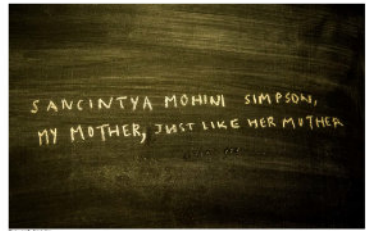 SANCINTYA MOHINI SIMPSON,
MY MOTHER, JUST LIKE HER MOTHER